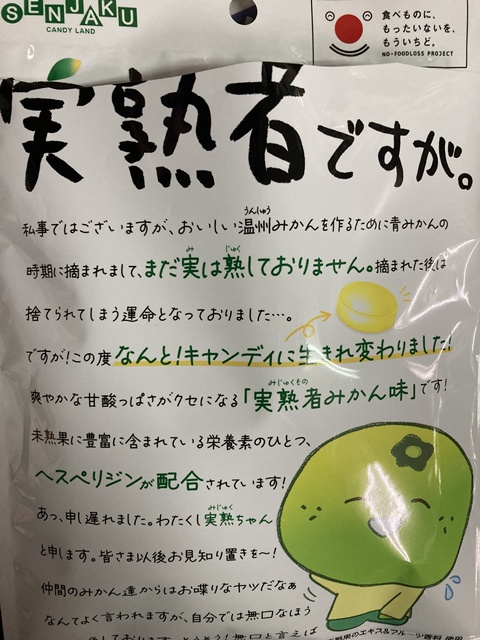 SENJAKU
CANDY LAND
食べものに、
もったいないを、
もういちど。
NO-FOODLOSS PROJECT
実熟者ですが。
うんしゅう
私事ではございますが、おいしい温州みかんを作るために青みかんの
み じゅく
時期に摘まれまして、まだ実は熟しておりません。摘まれた後は
捨てられてしまう運命となっておりました…。
ですが!この度なんと!キャンディに生まれ変わりました!
みじゅくもの
爽やかな甘酸っぱさがクセになる「実熟者みかん味」です!
未熟果に豊富に含まれている栄養素のひとつ、
ヘスペリジンが配合されています!
みじゅく
あっ、申し遅れました。わたくし実熟ちゃん
と申します。皆さま以後お見知り置きを〜!
仲間のみかん達からはお喋りなヤツだなぁ
なんてよく言われますが、自分では無口なほう